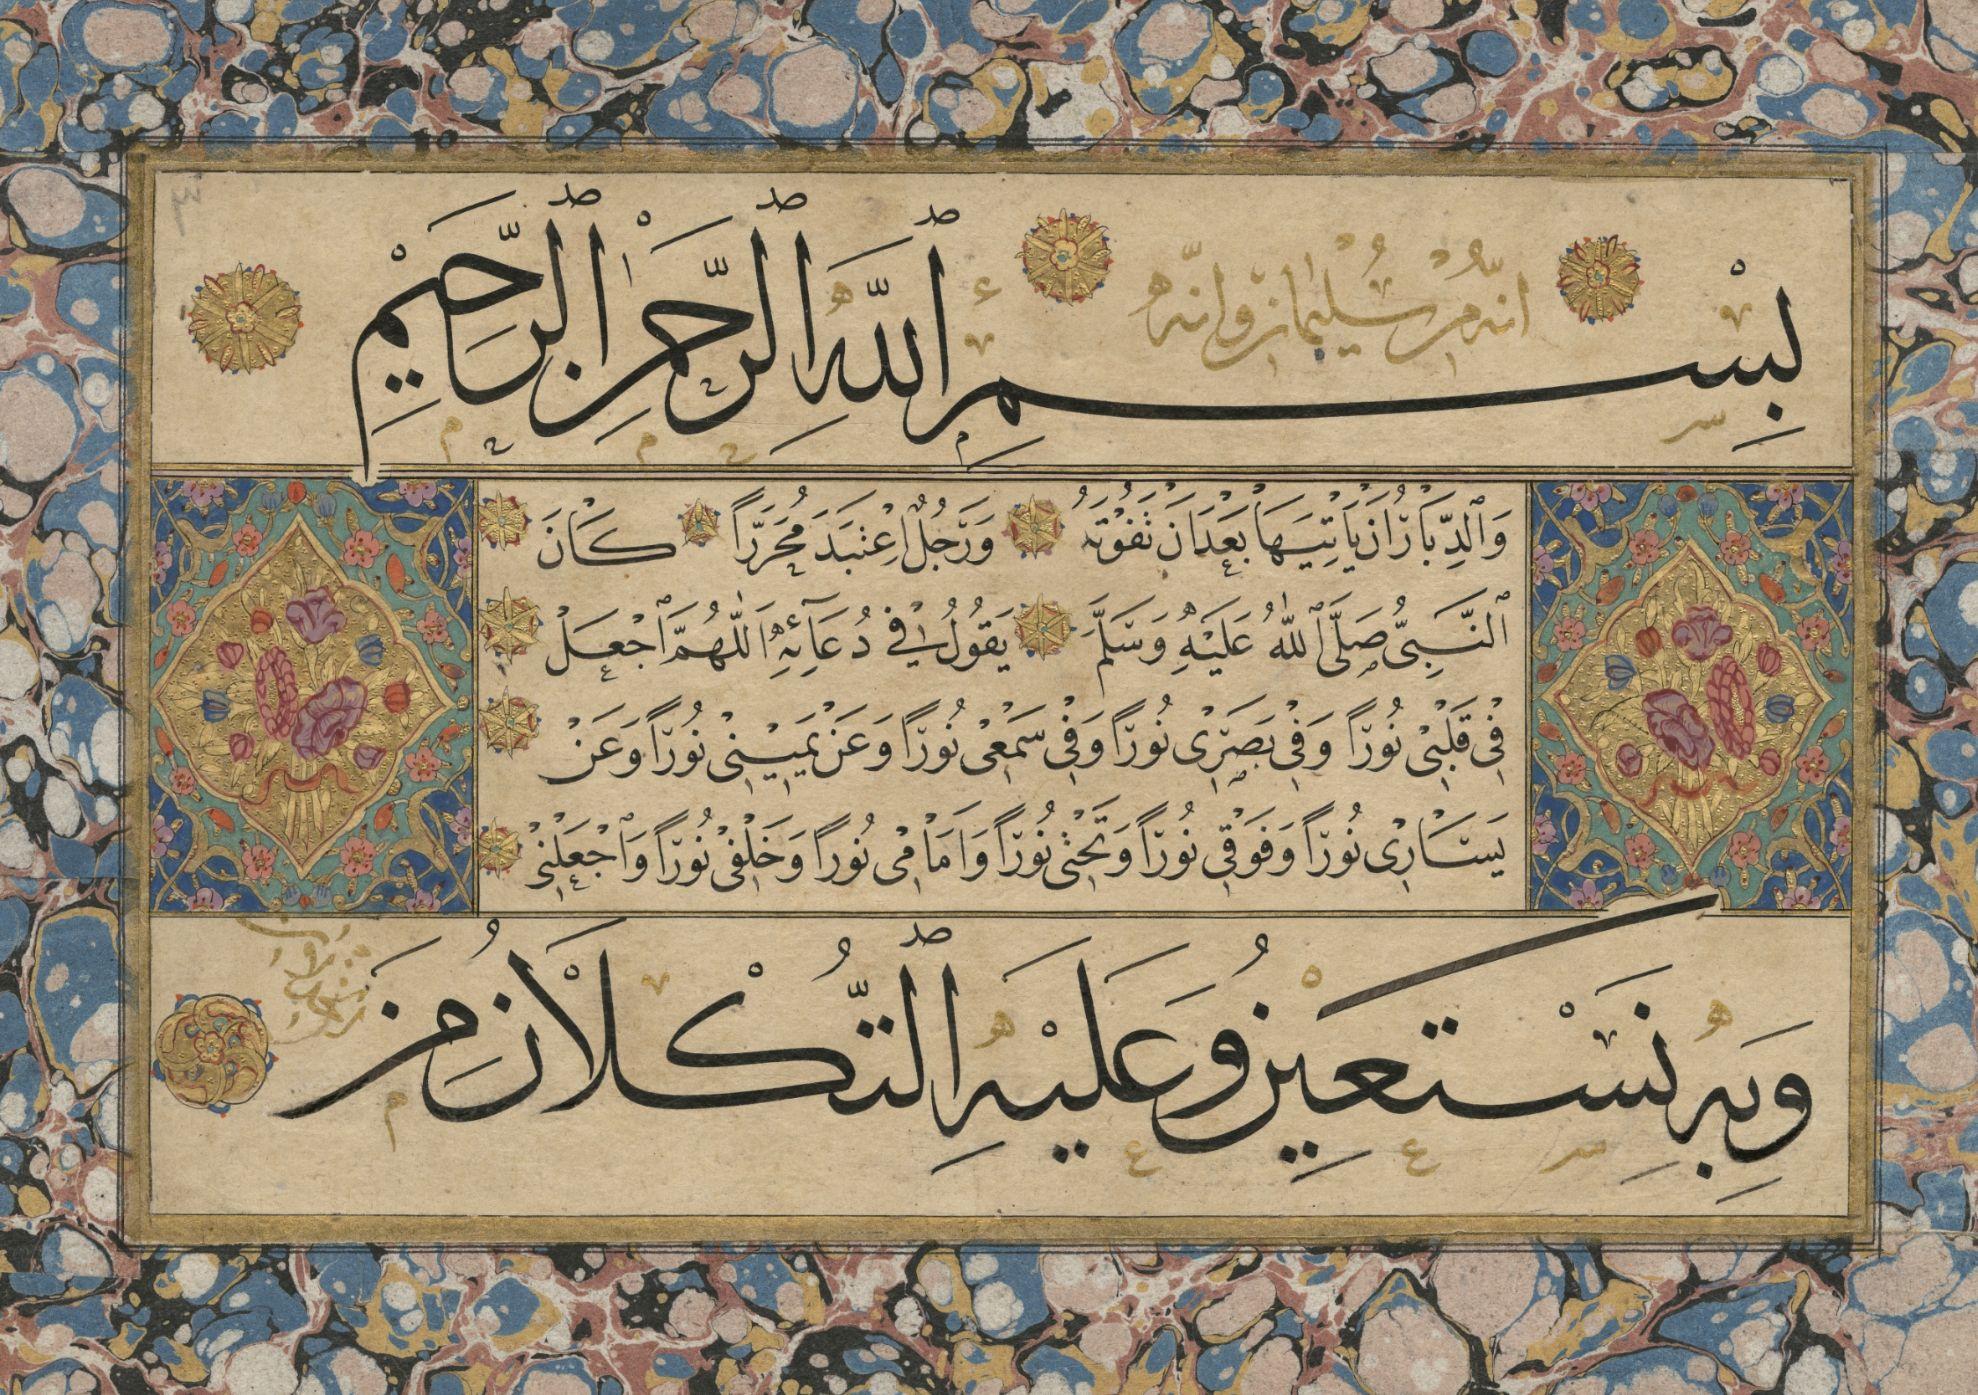 بِسْمِ ٱللّٰهِ ٱلرَّحْمٰنِ ٱلرَّحِيْمِ
انه من سليمان وانه
وَٱلدِّبَارُ اَنْ يَاْتِيَهَا بَعْدَ اَنْ تَفُوْتَهُ وَرَجُلٌ اِعْتَبَدَ مُحَرَّرًا كَانَ
ٱلنَّبِىُّ صَلَّى ٱللّٰهُ عَلَيْهِ وَسَلَّمَ يَقُولُ فِي دُعَآئِهِ اَللّٰهُمَّ ٱجْعَلْ
فِىْ قَلْبِىْ نُوْرًا وَفِىْ بَصَرِىْ نُوْرًا وَفِىْ سَمْعِىْ نُوْرًا وَعَنْ يَمِيْنِىْ نُوْرًا وَعَنْ
يَسَارِىْ نُوْرًا وَفَوْقِىْ نُوْرًا وَتَحْتِىْ نُوْرًا وَاَمَامِىْ نُوْرًا وَخَلْفِىْ نُوْرًا وَٱجْعَلْنِىْ
وَبِهِ نَسْتَعِيْنُ وَعَلَيْهِ ٱلتُّكْلَانُ مِنْ